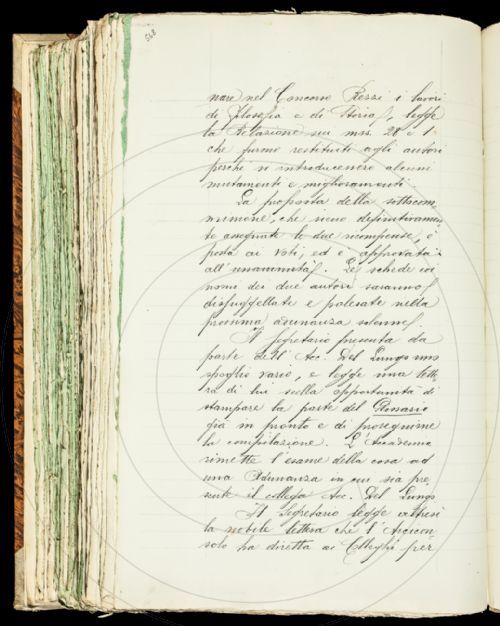 568
nare nel Concorso Rezzi i lavori
di filosofia e di storia, legge
la Relazione sui mss. 28 e 1
che furono restituiti agli autori
perché vi introducessero alcuni
mutamenti e miglioramenti.
La proposta della sottocom
missione, che sieno definitivamen
te assegnate le due ricompense, è
posta ai voti, ed è approvata
all'unanimità. Le schede coi
nomi dei due autori saranno
dissuggellate e palesate nella
prossima adunanza solenne.
Il Segretario presenta da
parte dell'Acc. Del Lungo uno
spoglio vario, e legge una lette
ra di lui sulla opportunità di
stampare la parte del Glossario
già in pronto e di proseguirne
la compilazione. L'Accademia
rimette l'esame della cosa ad
una Adunanza in cui sia pre
sente il collega Acc. Del Lungo
Il Segretario legge altresì
la nobile lettera che l'Arcicon-
solo ha diretta ai Colleghi per